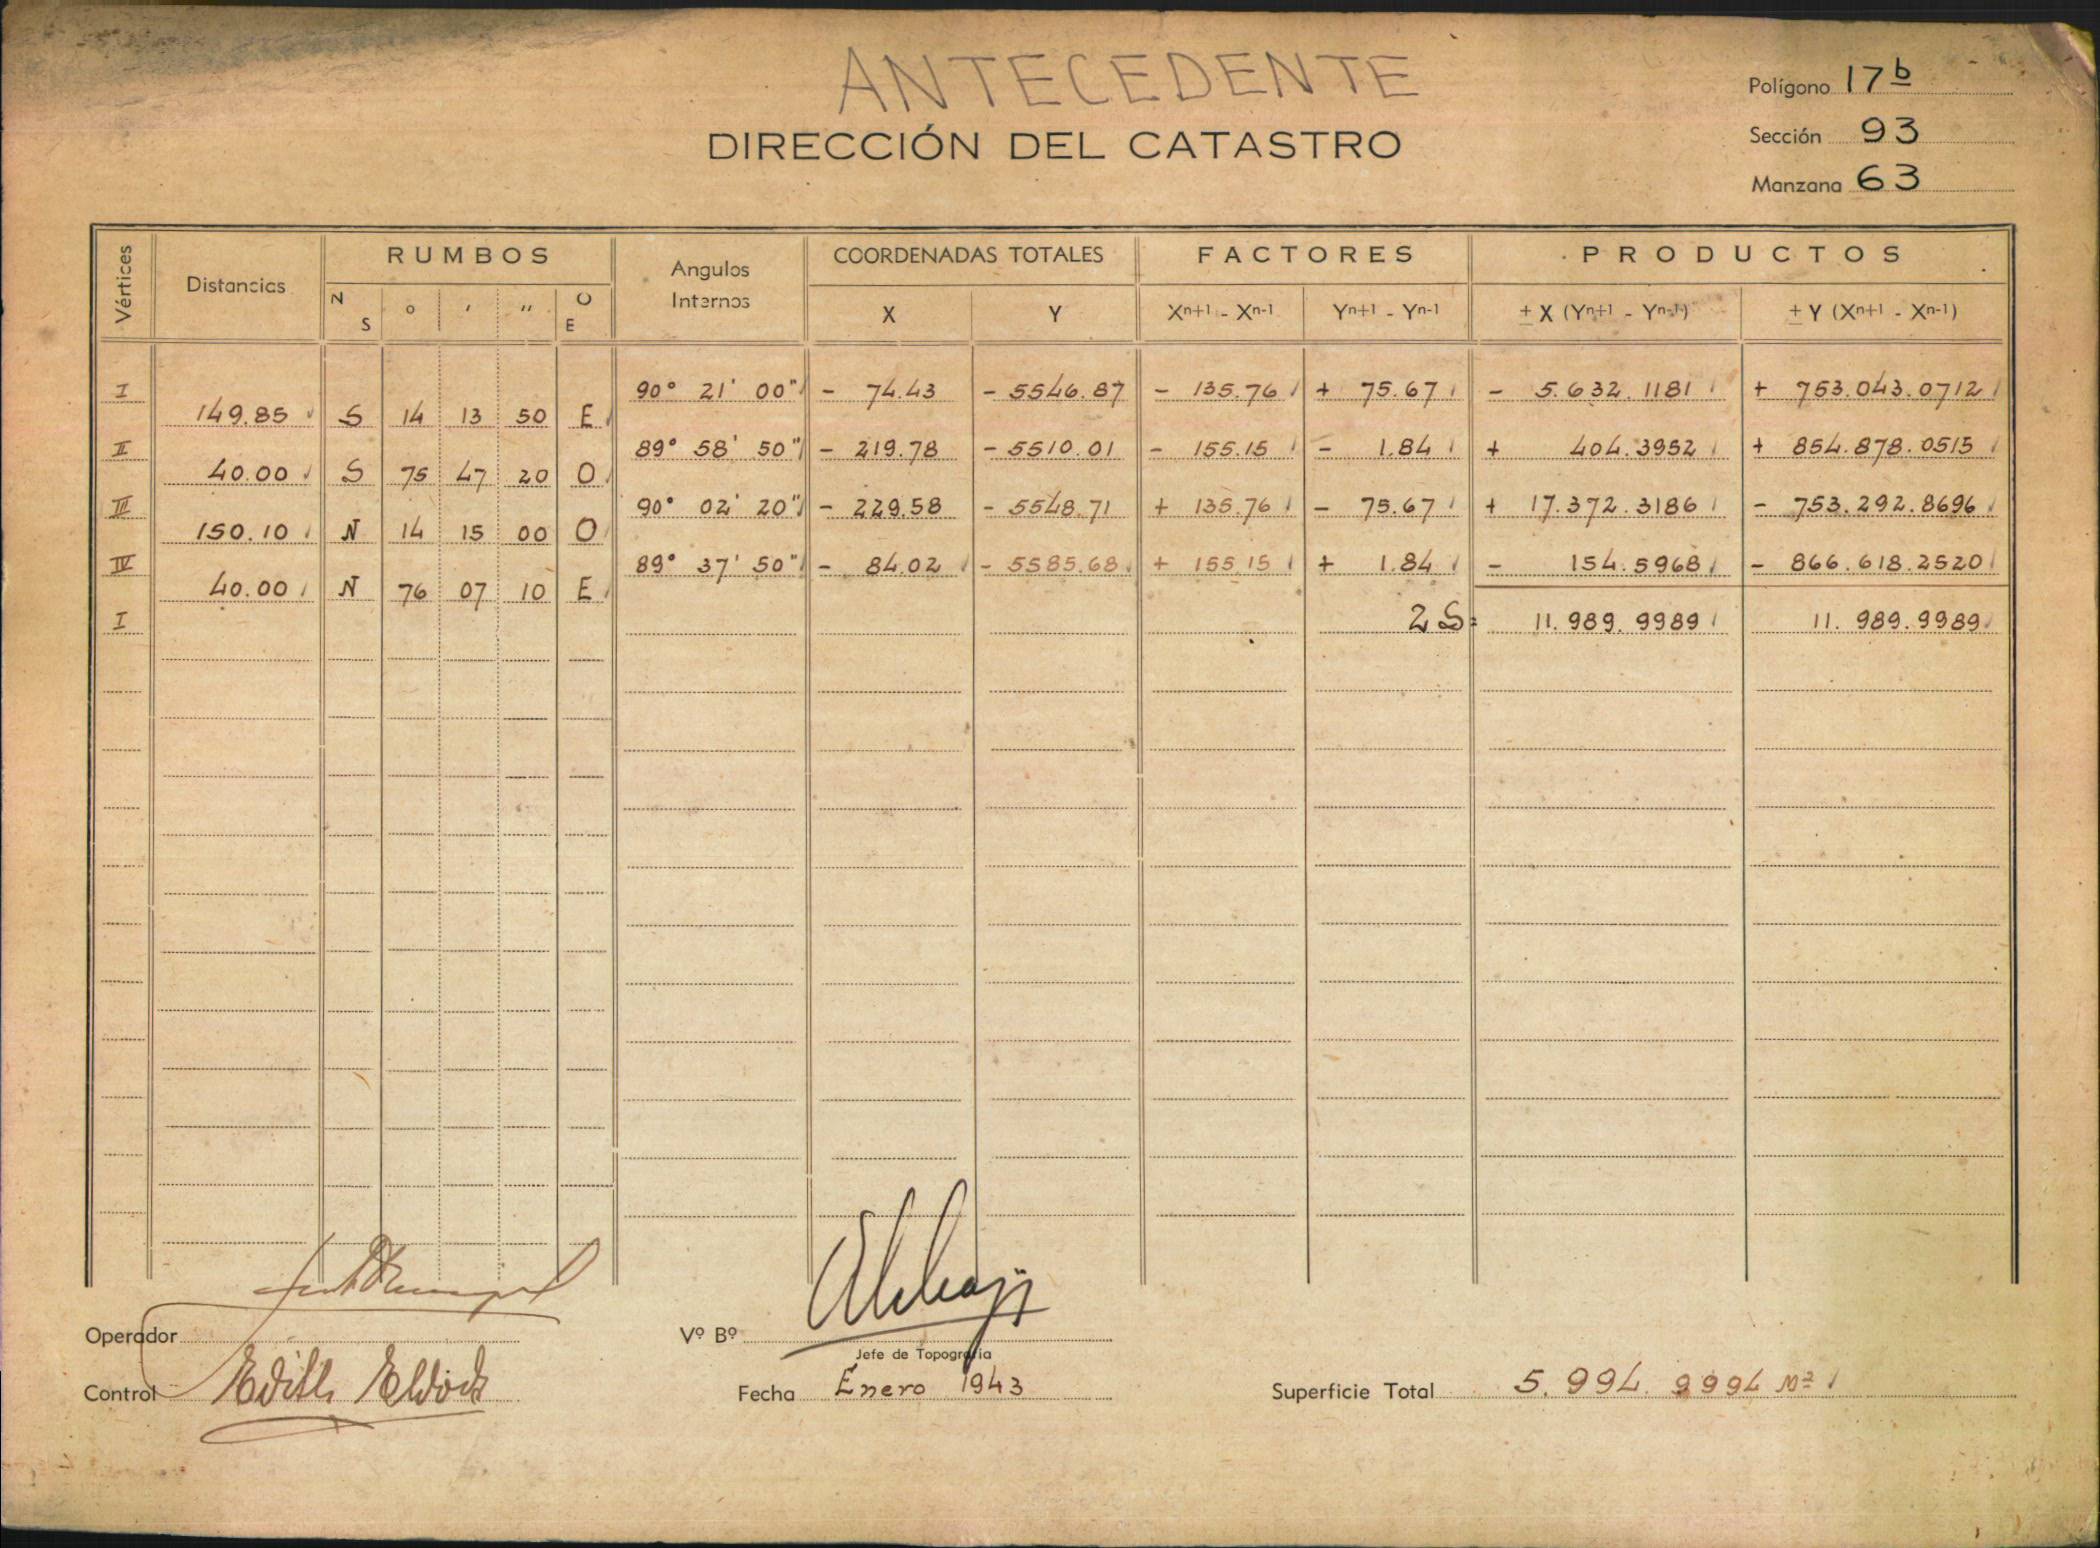 ANTECEDENTE
DIRECCIÓN DEL CATASTRO
Polígono 17b
Sección 93
Manzana 63
Vértices Distancias RUMBOS Angulos Internos COORDENADAS TOTALES FACTORES PRODUCTOS
N S ° ' '' O E X Y Xn+1 - Xn-1 Yn+1 - Yn-1 ± X (Yn+1 - Yn-1) ± Y (Xn+1 - Xn-1)
I 90° 21' 00" - 74.43 - 5546.87 - 135.76 + 75.67 - 5.632.1181 + 753.043.0712
149.85 S 14 13 50 E
II 89° 58' 50" - 219.78 - 5510.01 - 155.15 - 1.84 + 404.3952 + 854.878.0515
40.00 S 75 47 20 O
III 90° 02' 20" - 229.58 - 5548.71 + 135.76 - 75.67 + 17.372.3186 - 753.292.8696
150.10 N 14 15 00 O
IV 89° 37' 50" - 84.02 - 5585.68 + 155.15 + 1.84 - 154.5968 - 866.618.2520
40.00 N 76 07 10 E
I 2S= 11.989.9989 11.989.9989
Operador
Vº Bº
Jefe de Topografía
Control Edith
Fecha Enero 1943
Superficie Total 5.994.9994 M2